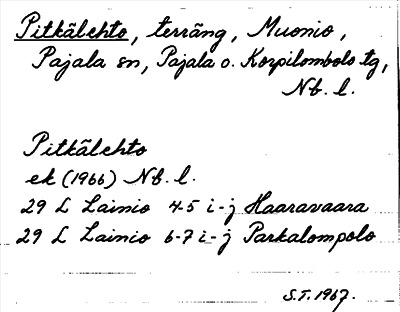 Pitkälehto, terräng, Muonio,
Pajala sn, Pajala o. Korpilombolo tg,
Nb. l.
Pitkälehto
ek (1966) Nb. l.
29 L Lainio 4-5 i-j Haaravaara
29 L Lainio 6-7 i-j Parkalompolo
S.T. 1967.